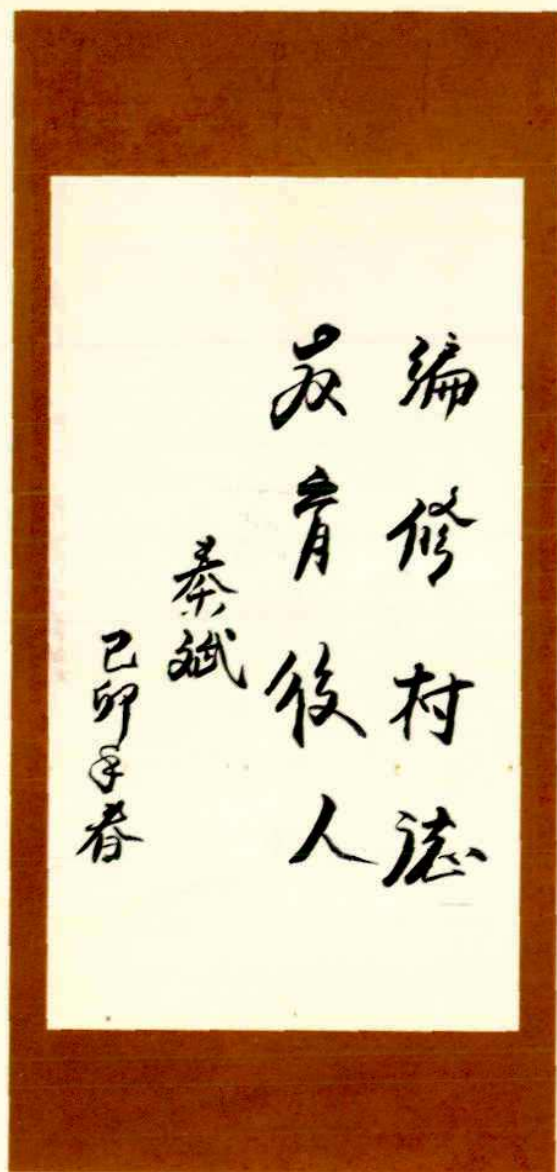 编修村誌
教育後人
秦斌
己卯年春